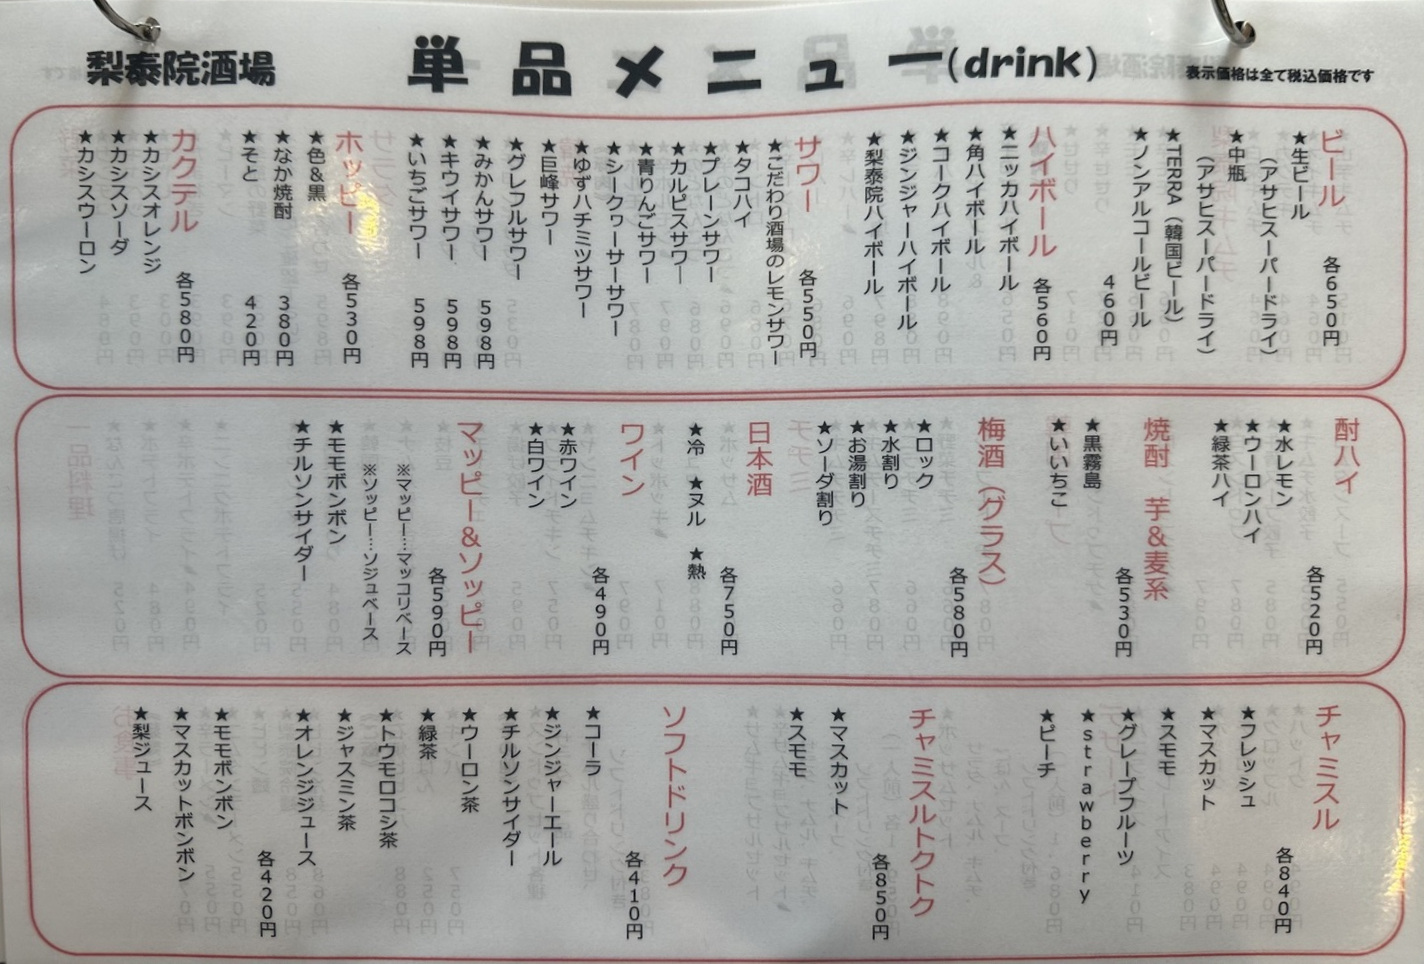 梨泰院酒場
単品メニュー(drink)
表示価格は全て税込価格です
ビール
各650円
★生ビール
(アサヒスーパードライ)
★中瓶
(アサヒスーパードライ)
★TERRA(韓国ビール)
★ノンアルコールビール
460円
ハイボール
各560円
★ニッカハイボール
★角ハイボール
★コークハイボール
★ジンジャーハイボール
★梨泰院ハイボール
サワー
各550円
★こだわり酒場のレモンサワー
★タコハイ
★プレーンサワー
★カルピスサワー
★青りんごサワー
★シークヮーサーサワー
★ゆずハチミツサワー
★巨峰サワー
★グレフルサワー
★みかんサワー 598円
★キウイサワー 598円
★いちごサワー 598円
ホッピー
各530円
★色&黒
★なか焼酎 380円
★そと 420円
カクテル
各580円
★カシスオレンジ
★カシスソーダ
★カシスウーロン
酎ハイ
各520円
★水レモン
★ウーロンハイ
★緑茶ハイ
焼酎 芋&麦系
各530円
★黒霧島
★いいちこ
梅酒(グラス)
各580円
★ロック
★水割り
★お湯割り
★ソーダ割り
日本酒
各750円
★冷 ★ヌル ★熱
ワイン
各490円
★赤ワイン
★白ワイン
マッピー&ソッピー
各590円
※マッピー…マッコリベース
※ソッピー…ソジュベース
★モモボンボン
★チルソンサイダー
チャミスル
各840円
★フレッシュ
★マスカット
★スモモ
★グレープフルーツ
★strawberry
★ピーチ
チャミスルトクトク
各850円
★マスカット
★スモモ
ソフトドリンク
各410円
★コーラ
★ジンジャーエール
★チルソンサイダー
★ウーロン茶
★緑茶
★トウモロコシ茶
★ジャスミン茶
★オレンジジュース
各420円
★モモボンボン
★マスカットボンボン
★梨ジュース